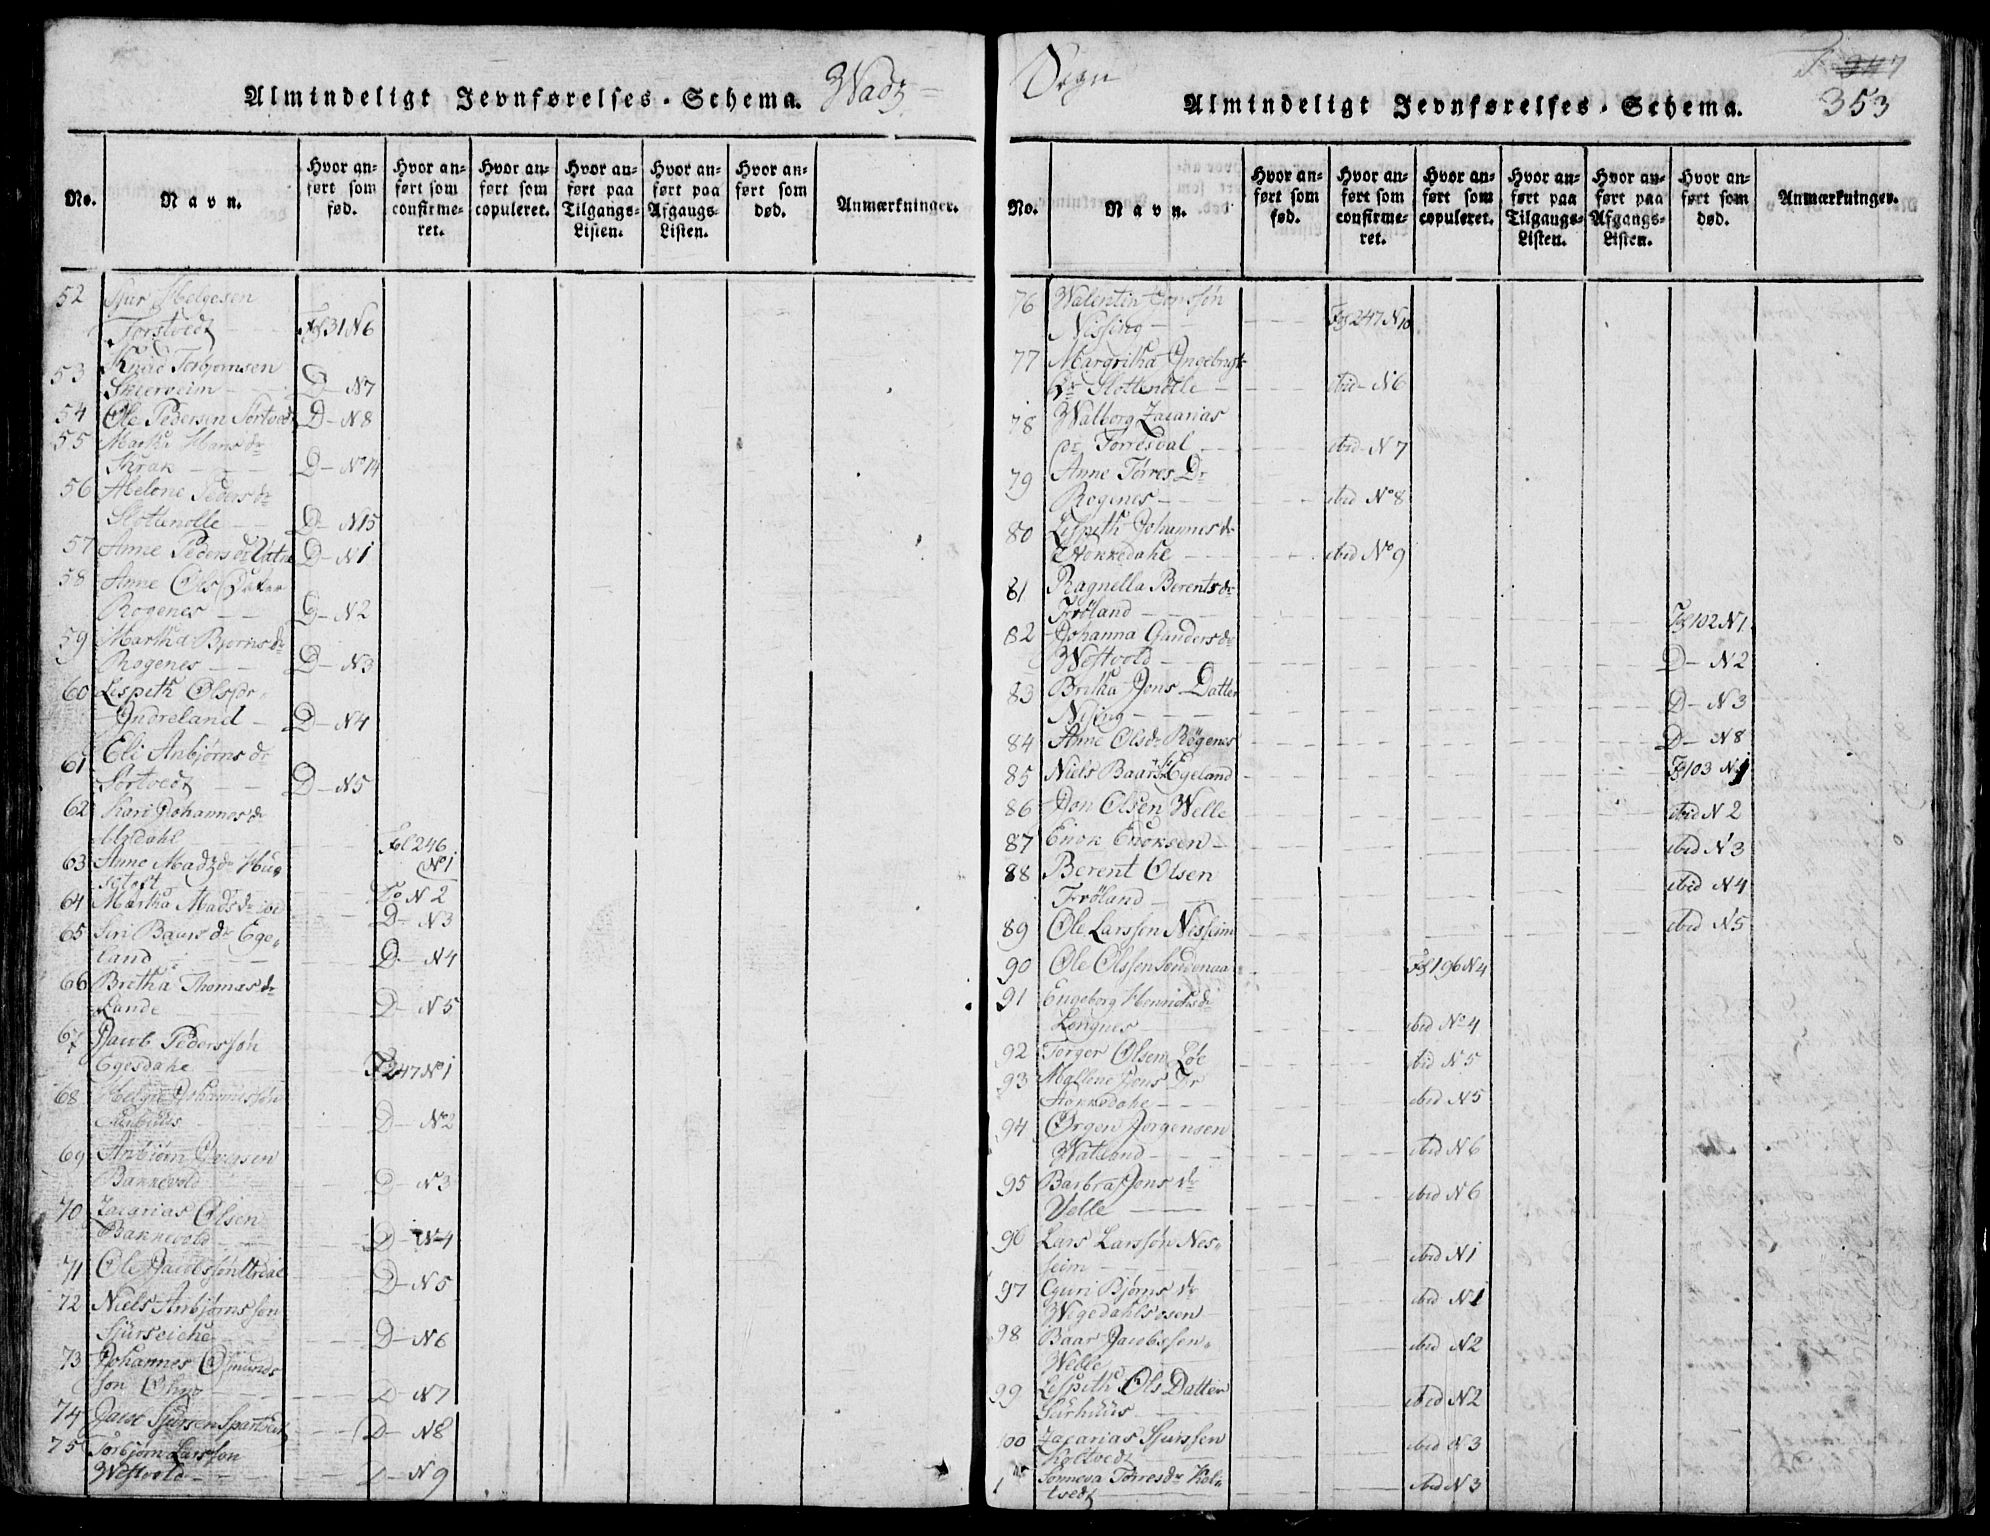 Almindeligt Jevnførelses-Schema.
Wadz-
No.
Navn.
Hvor anført som fød.
Hvor anført som confirmeret.
Hvor anført som copuleret.
Hvor anført paa Tilgangs-Listen.
Hvor anført paa Afgangs-Listen.
Hvor anført som død.
Anmærkninger.
52 Sjur Helgesen
Torstvedt Fol 31 N6
53 Knud Torbjornsen
Skierveim D- N7
54 Ole Pedersen Tortved D- N8
55 Martha Hans dr
Skrak D- No 14
56 Helene Peders dr
Slottenolle D- N15
57 Anne Peders dr D- N1
58 Anne Ols Datter
Rogenes D- N2
59 Martha Bjorns dr
Rogenes D- N3
60 Lispeth Ols dr
Indreland D- N4
61 Eli Anbjørns dr
Tortvedt D- N5
62 Kari Johannes dr
Fol 246
No 1
63 Anne Madz dr
No N2
64 Martha Mads dr D- N3
65 Siri Baars dr Ege-
land D- N4
66 Bretha Thomas dr
Lande D- N5
67 Jacob Pederssøn
Egesdahl F 247 No 1
68 Helgie Johannessøn
D- No 2
69 Anbiørn Iversen
Bannevold D- N3
70 Zacarias Olsen
Bannevold D- N4
71 Ole Jacobssøn D- N5
72 Niels Anbjørnsson
D- N6
73 Johannes Osmunds
søn D- N7
74 Jacob Sjursen D- N8
75 Torbjørn Larssøn
Westvold D- N9
Sogn
F 347
353
Almindeligt Jevnførelses-Schema.
No.
Navn.
Hvor anført som fød.
Hvor anført som confirmeret.
Hvor anført som copuleret.
Hvor anført paa Tilgangs-Listen.
Hvor anført paa Afgangs-Listen.
Hvor anført som død.
Anmærkninger.
76 Walentin Jonssøn
Nissing Fol 247 N 10
77 Margritha Ingebrigt
Dr Slottenolle ibid- N6
78 Walborg Zacarias
dr Torresdal ibid- N7
79 Anne Tørres Dr
Rogenes ibid No 8
80 Lispeth Johannes dr
Stokkedahl ibid No 9
81 Ragnella Berents dr
Frøland Fol 102 N1
82 Johanna Gunders dr
Westvold D- N2
83 Britha Jons Datter
Nising D- N3
84 Anne Ols dr Røgenes D- N8
85 Niels Baars Egeland Fol 103 N1
86 Jon Olsen Welle ibid N2
87 Enok Enoksen ibid N3
88 Berent Olsen
Frøland ibid N4
89 Ole Larssen Nisseim ibid N5
90 Ole Olssen Søndenaa Fol 196 N4
91 Engeborg Henrichs dr
Longnes ibid No 4
92 Torger Olsen Løe ibid N5
93 Mallene Jons Dr
Stokkedahl ibid N5
94 Ørgen Jorgensen
Watland ibid N6
95 Barbra Jons dr
Velle ibid N6
96 Lars Larssøn Nes-
seim ibid N1
97 Guri Bjørns dr
Wigedahlsosen ibid N1
98 Baar Jacobssen
Welle ibid N2
99 Lispeth Ols Datter
Surhuus ibid N2
100 Zacarias Sjurssen
Holtvedt ibid N3
1 Sonneva Tørres dr Hol-
tvedt ibid N3